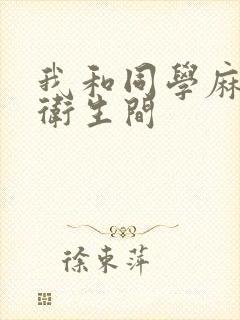 我和同學麻
衛生間
徐東萍